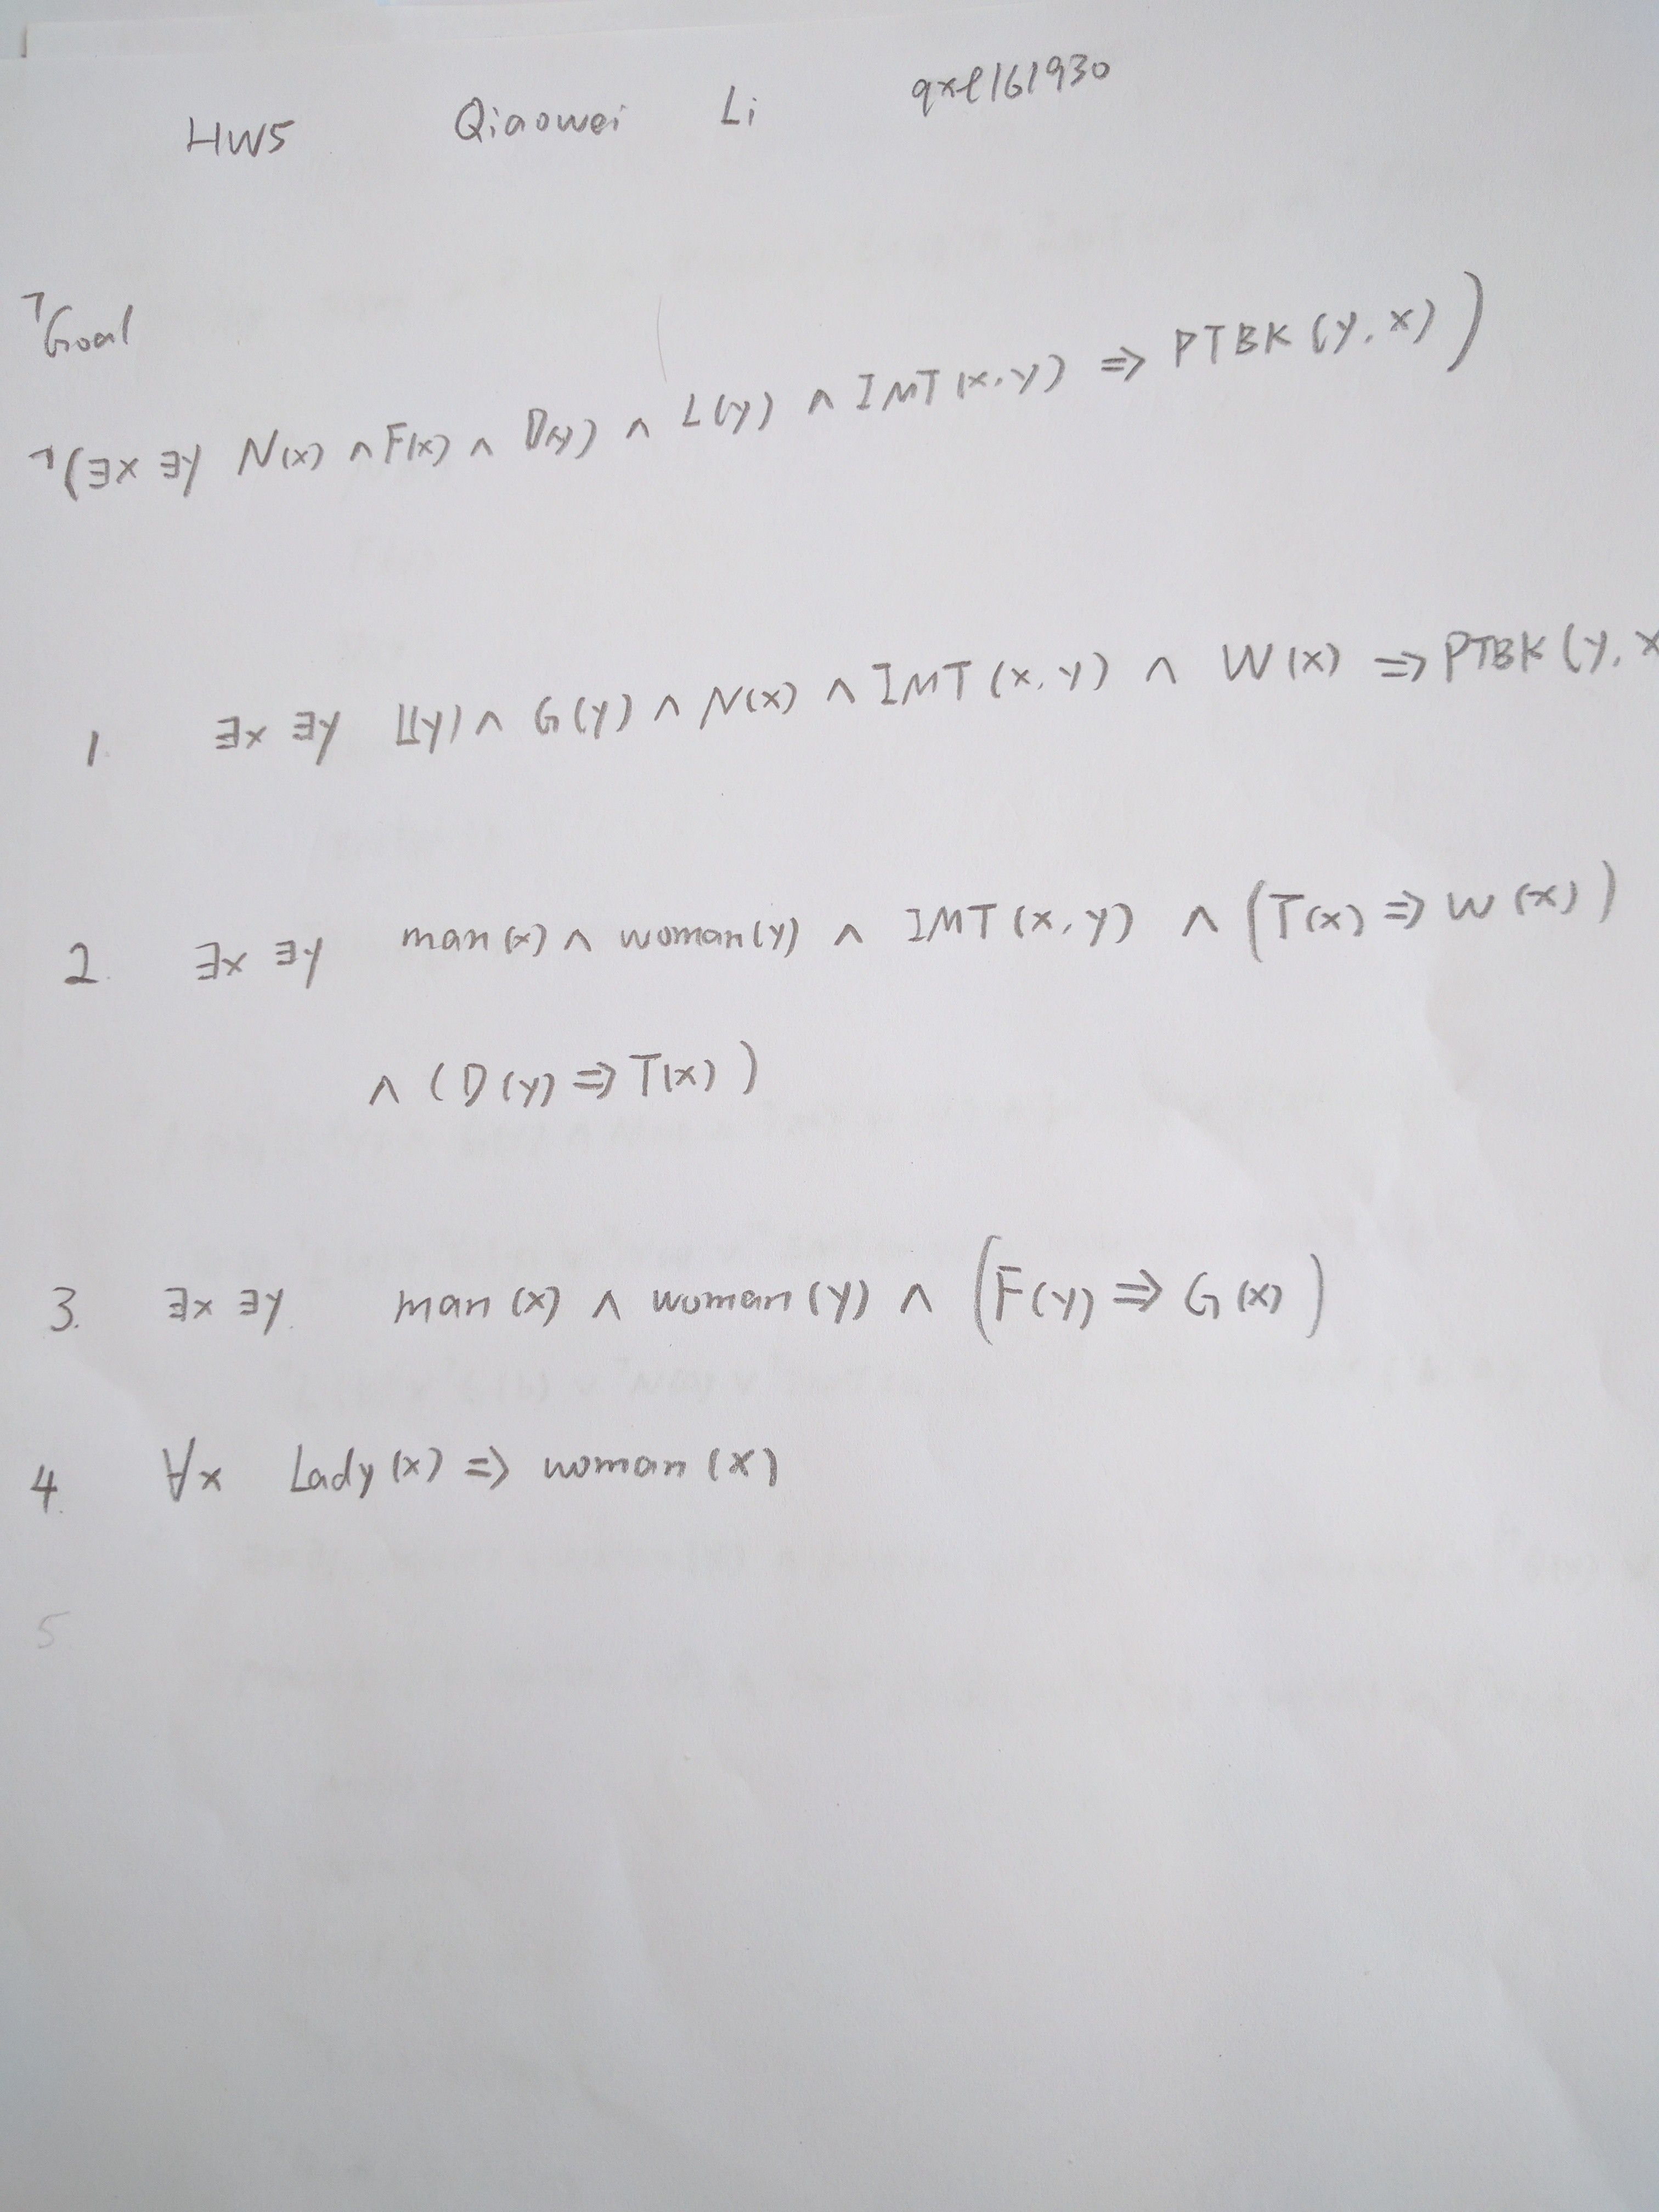 HW5 Qiaowei Li qxl161930
¬Goal
¬(∃x ∃y N(x) ∧ F(x) ∧ D(y) ∧ L(y) ∧ IMT(x,y) ⇒ PTBK(y,x))
1. ∃x ∃y L(y) ∧ G(y) ∧ N(x) ∧ IMT(x,y) ∧ W(x) ⇒ PTBK(y,x
2. ∃x ∃y man(x) ∧ woman(y) ∧ IMT(x,y) ∧ (T(x) ⇒ W(x))
∧ (D(y) ⇒ T(x))
3. ∃x ∃y. man(x) ∧ woman(y) ∧ (F(y) ⇒ G(x))
4. ∀x Lady(x) ⇒ woman(x)
5